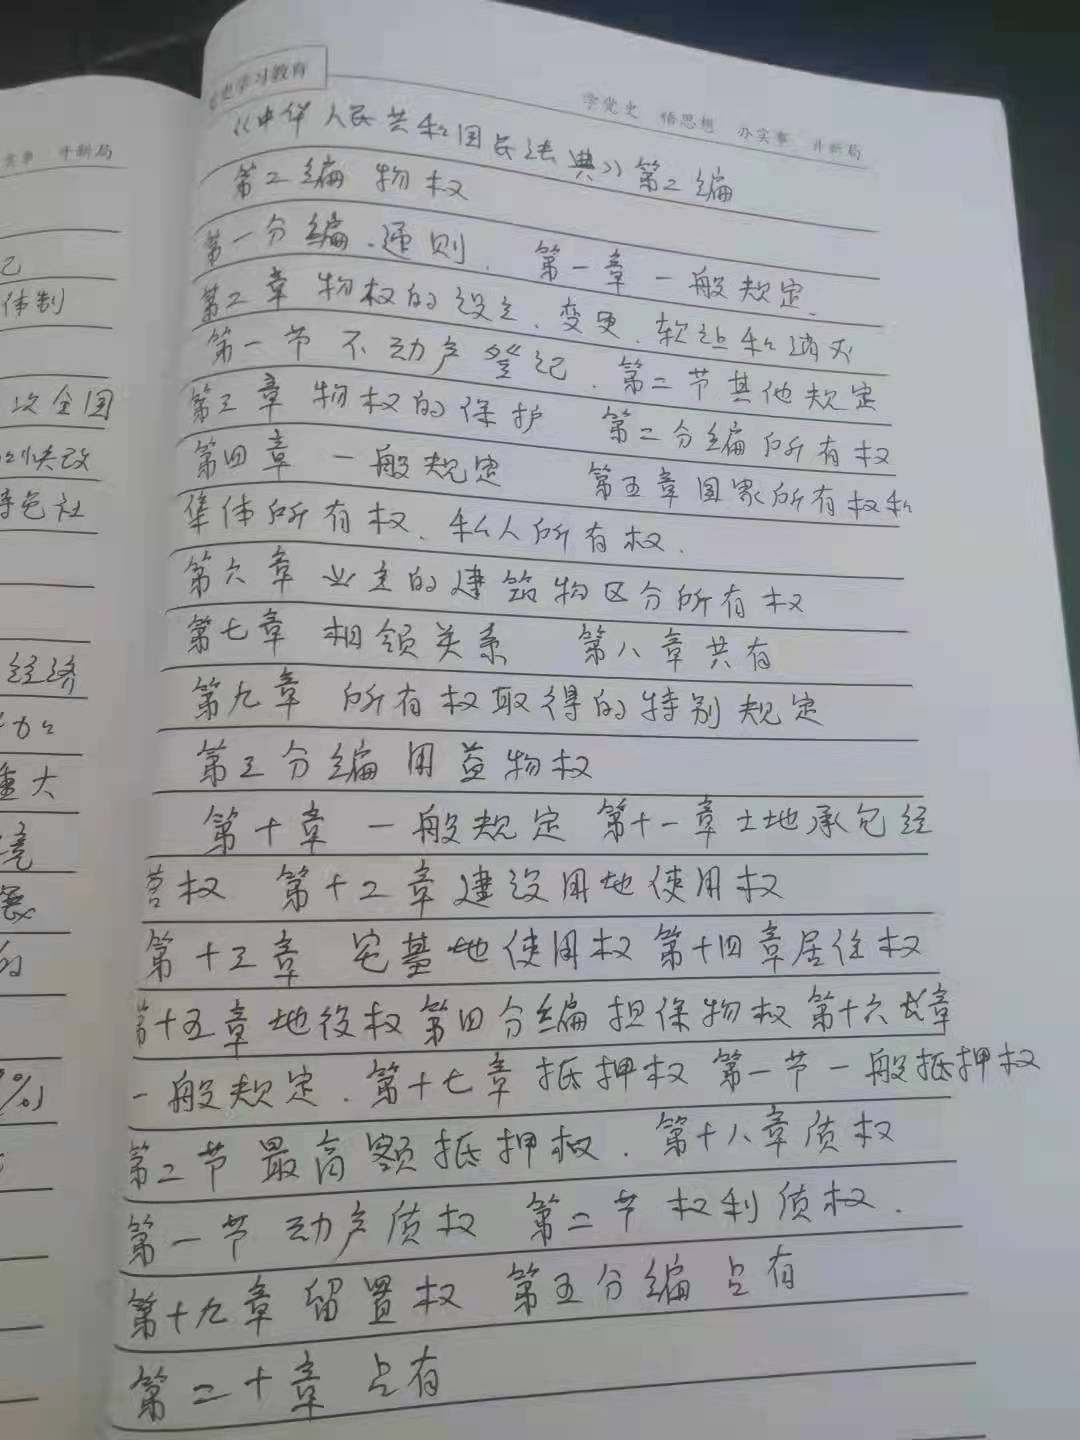 党史学习教育
学党史 悟思想 办实事 开新局
《中华人民共和国民法典》第二编
第二编 物权
第一分编、通则. 第一章 一般规定.
第二章 物权的设立、变更、转让和消灭
第一节 不动产登记. 第二节其他规定
第三章 物权的保护 第二分编所有权
第四章 一般规定 第五章国家所有权和
集体所有权、私人所有权.
第六章 业主的建筑物区分所有权
第七章 相领关系 第八章共有
第九章 所有权取得的特别规定
第三分编 用益物权
第十章 一般规定 第十一章土地承包经
营权 第十二章建设用地使用权
第十三章 宅基地使用权 第十四章居住权
第十五章地役权 第四分编 担保物权 第十六章
一般规定. 第十七章 抵押权 第一节 一般抵押权
第二节 最高额抵押权. 第十八章质权
第一节 动产质权 第二节 权利质权.
第十九章 留置权 第五分编 占有
第二十章 占有
实事 开新局
己
体制
攻全国
快改
特色社
经济
重大
境
展
的
%)